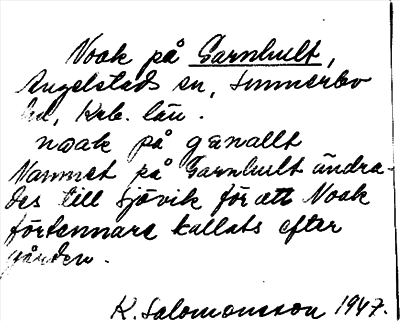 Noak på Garnhult,
Angelstads sn, Sunnerbo
hd, Krb. län.
nɷak på gɑnallt
Namnet på Garnhult ändra-
des till Sjövik för att Noak
förtennare kallats efter
gården.
K. Salomonsson 1947.